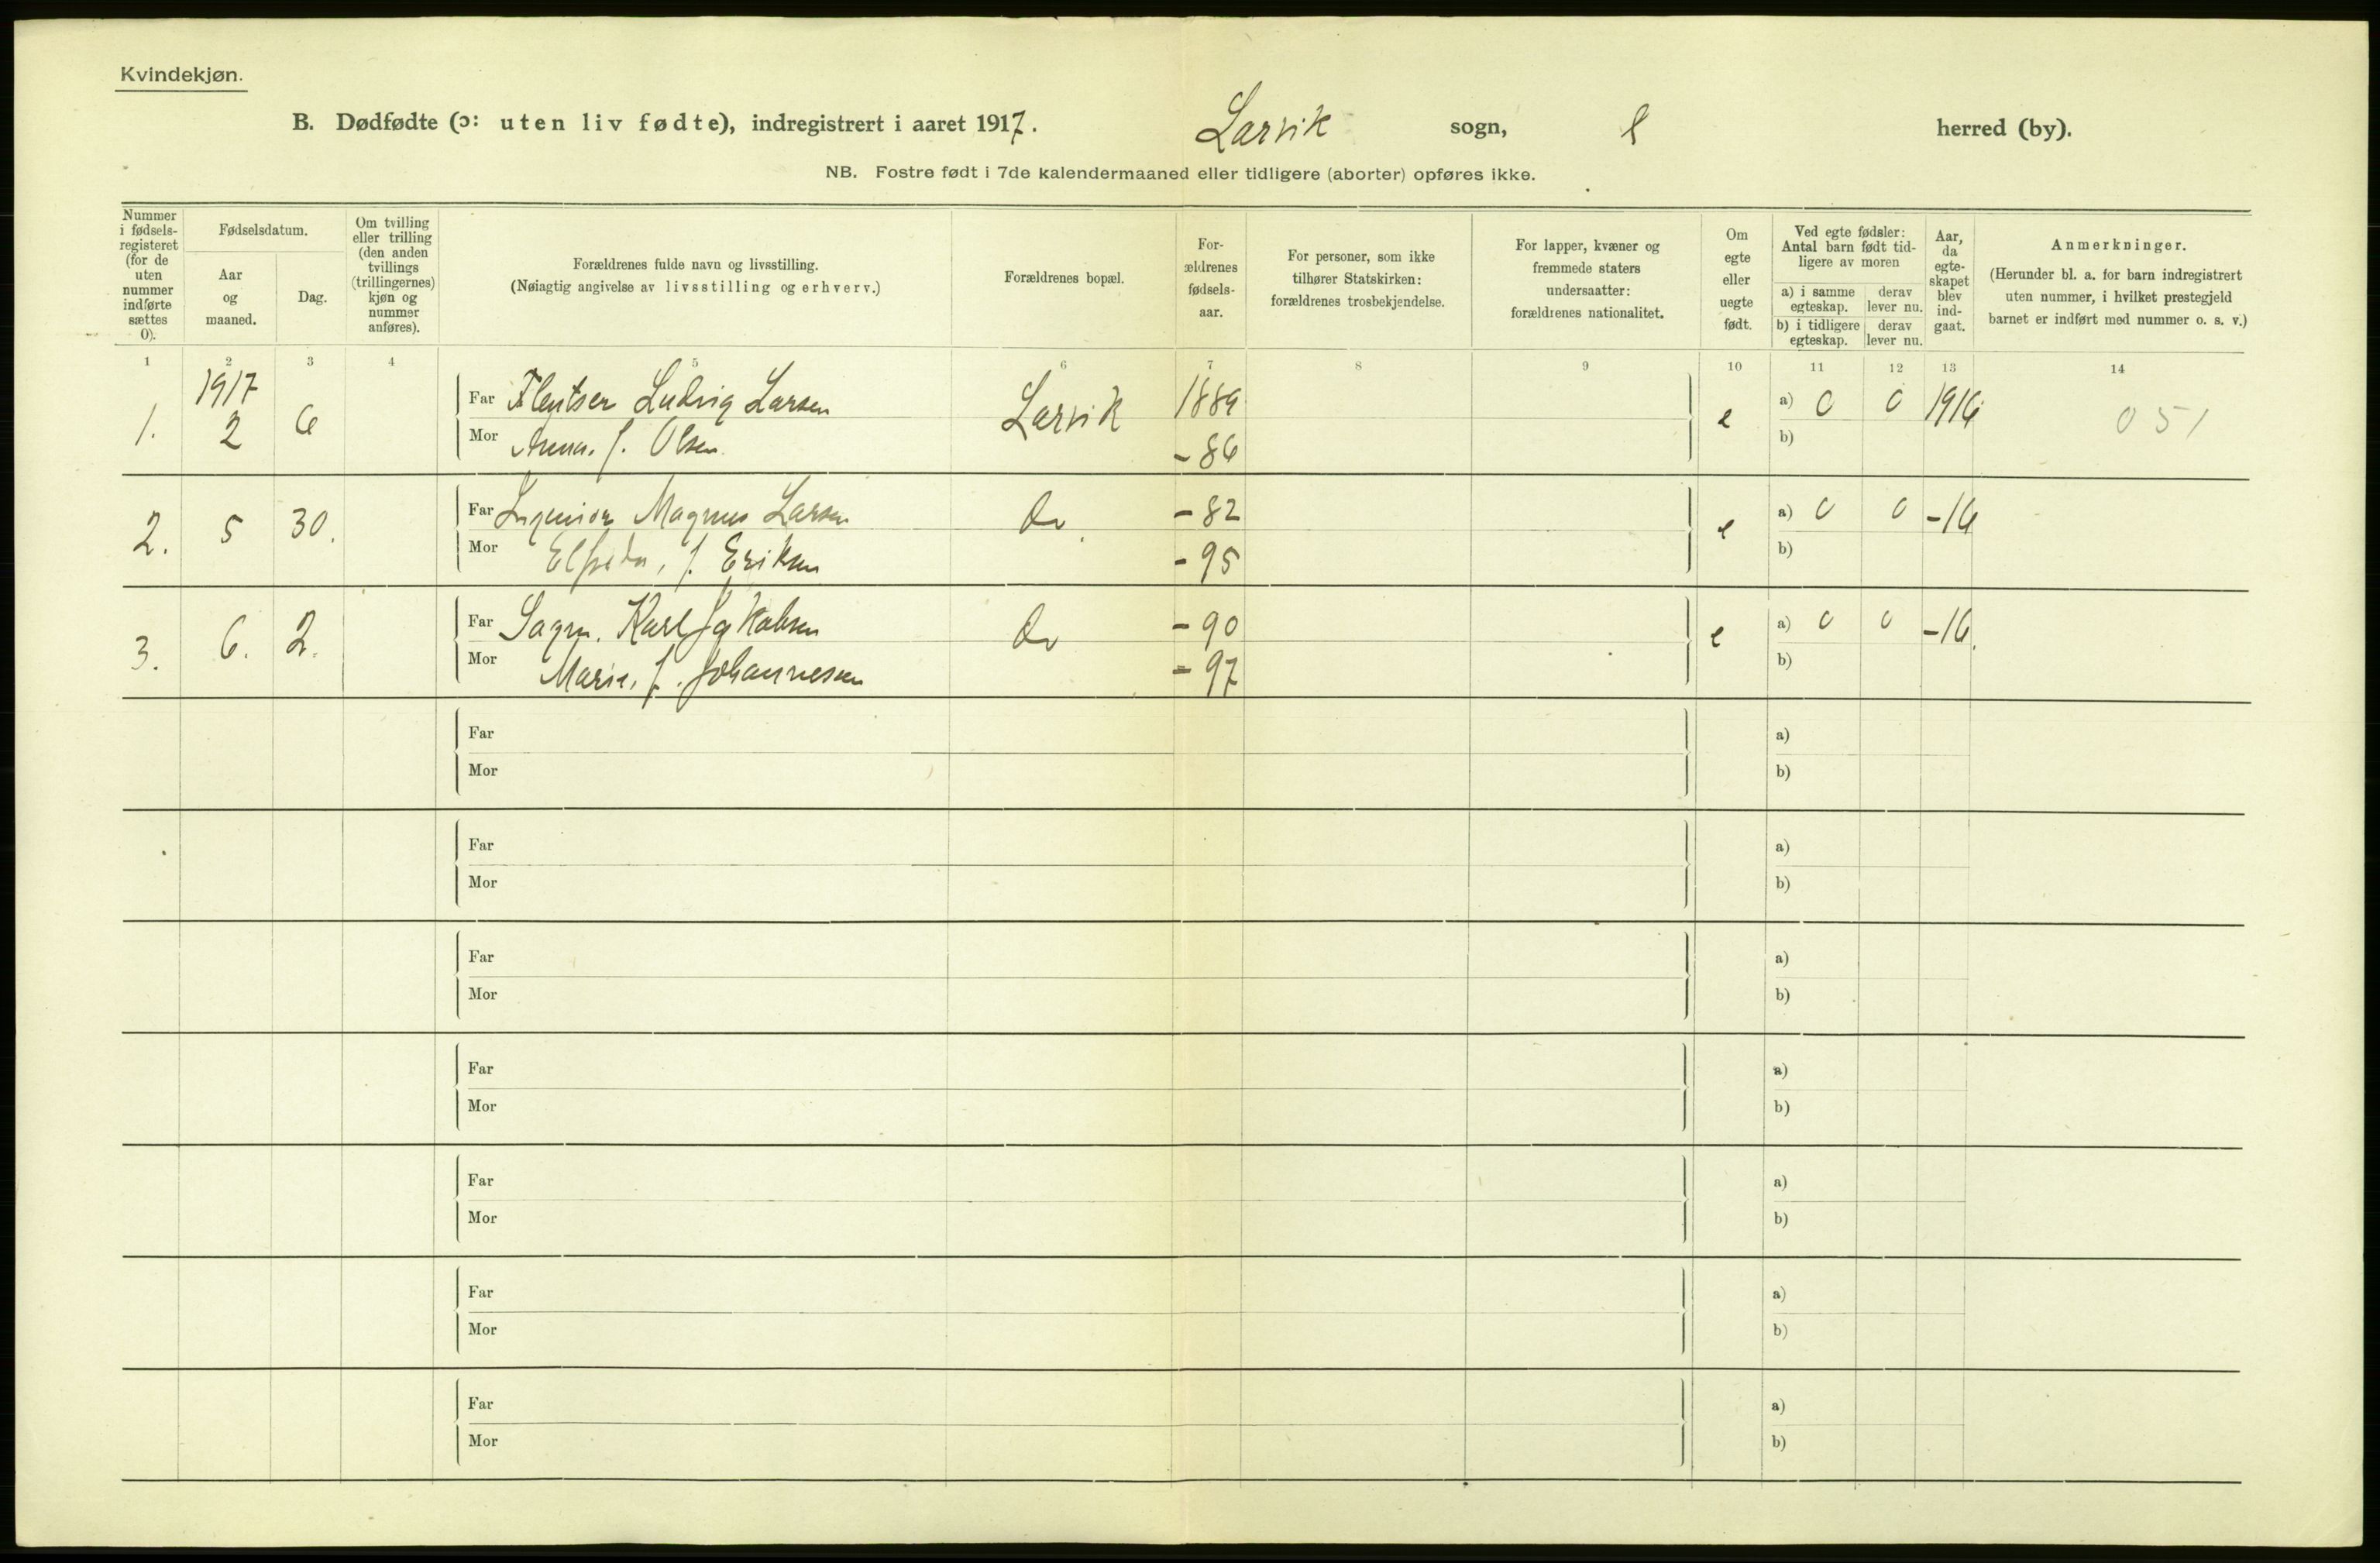 Kvindekjøn.
B. Dødfødte (ɔ: uten liv fødte), indregistrert i aaret 1917. Larvik sogn, herred (by).
NB. Fostre født i 7de kalendermaaned eller tidligere (aborter) opføres ikke.
Nummer i fødsels-registeret (for de uten nummer indførte sættes 0).
Fødselsdatum.
Aar og maaned.
Dag.
Om tvilling eller trilling (den anden tvillings (trillingernes) kjøn og nummer anføres).
Forældrenes fulde navn og livsstilling.
(Nøiagtig angivelse av livsstilling og erhverv.)
Forældrenes bopæl.
For-ældrenes fødsels-aar.
For personer, som ikke tilhører Statskirken: forældrenes trosbekjendelse.
For lapper, kvæner og fremmede staters undersaatter: forældrenes nationalitet.
Om egte eller uegte født.
Ved egte fødsler: Antal barn født tid-ligere av moren
a) i samme egteskap.
derav lever nu.
b) i tidligere egteskap.
derav lever nu.
Aar, da egte-skapet blev ind-gaat.
Anmerkninger.
(Herunder bl. a. for barn indregistrert uten nummer, i hvilket prestegjeld barnet er indført med nummer o. s. v.)
1 2 3 4 5 6 7 8 9 10 11 12 13 14
1917
1. 2 6 Far Ludvig Larsen Larvik e a) 0 0 1916 051
Mor Anna, f. Olsen -86 b)
2. 5 30. Far Ingeniør Magnus Larsen do. -82 e a) 0 0 -16
Mor Elfrida, f. Eriksen -95 b)
3. 6. 2. Far Sagm. Karl Jakobsen do -90 e a) 0 0 -16.
Mor Marie, f. Johannesen -97 b)
Far a)
Mor b)
Far a)
Mor b)
Far a)
Mor b)
Far a)
Mor b)
Far a)
Mor b)
Far a)
Mor b)
Far a)
Mor b)